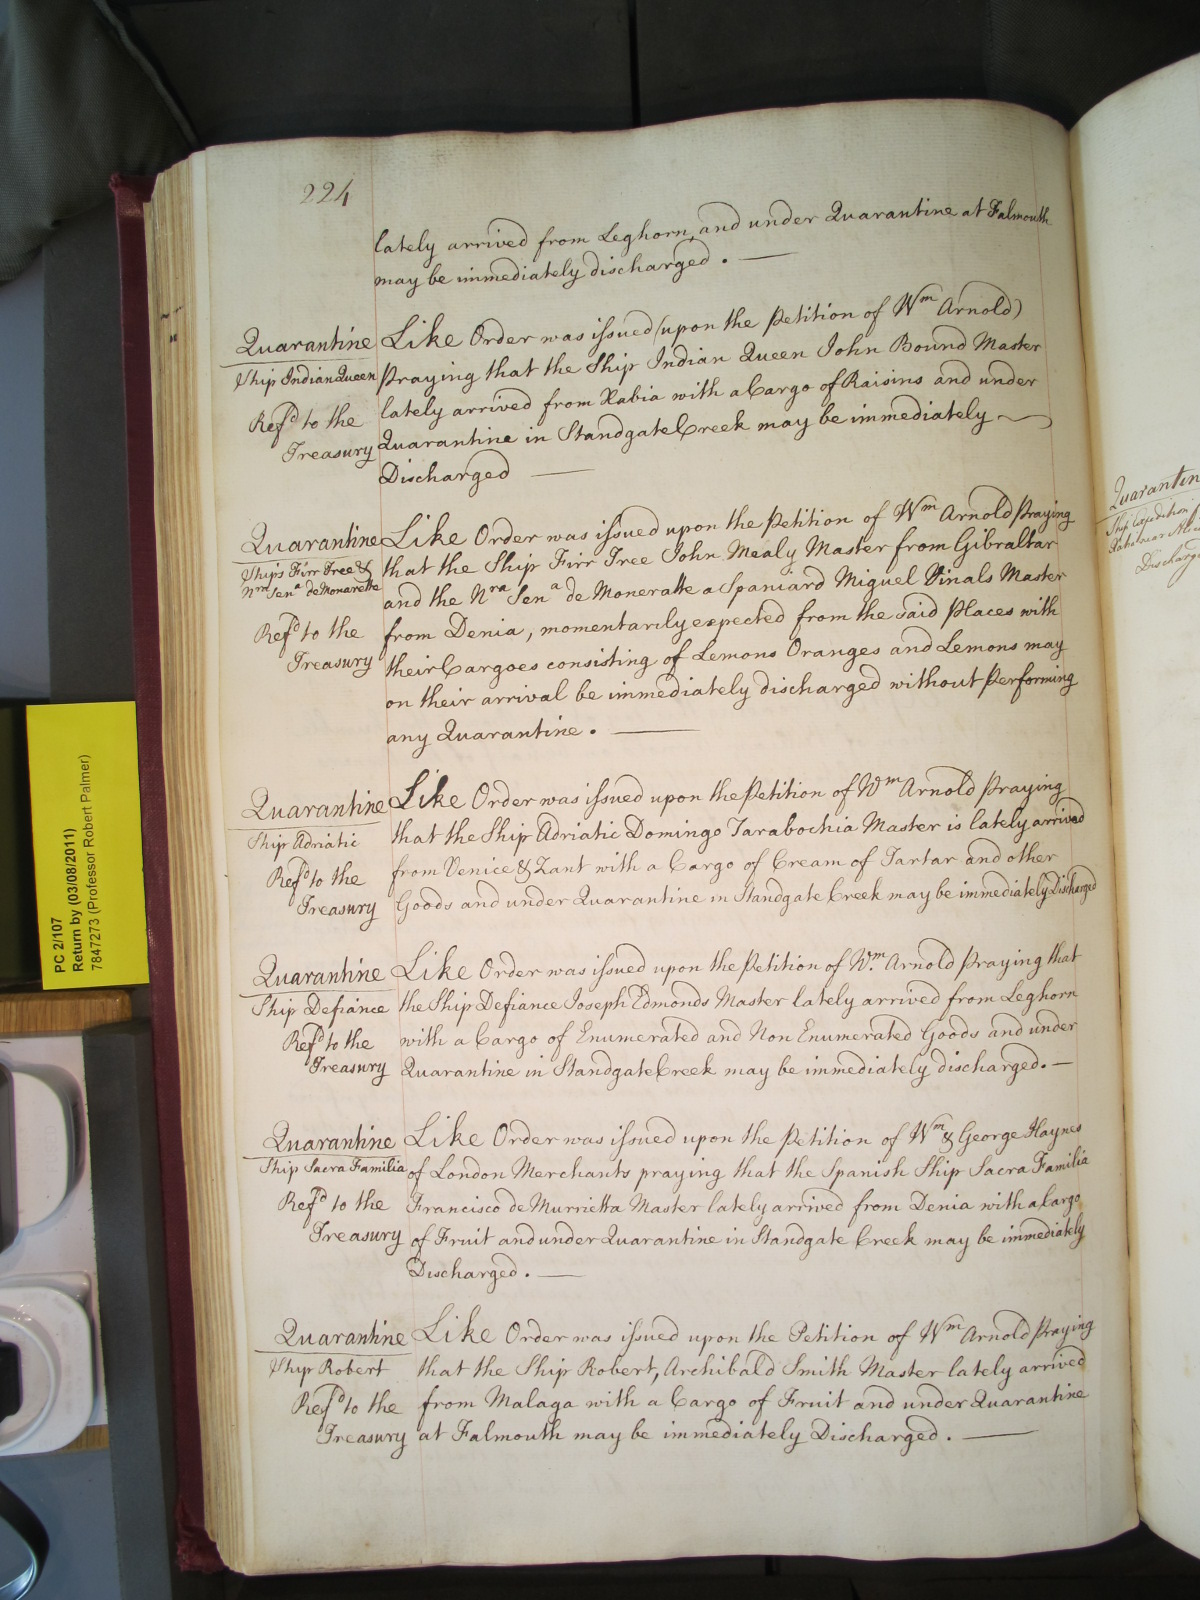 224
lately arrived from Leghorn, and under Quarantine at Falmouth
may be immediately discharged. —
Quarantine
Ship Indian Queen
Refd to the
Treasury
Like Order was issued (upon the Petition of Wm Arnold)
Praying that the Ship Indian Queen John Bound Master
lately arrived from Xabia with a Cargo of Raisins and under
Quarantine in Standgate Creek may be immediately
Discharged —
Quarantine
Ships Firr Tree &
Nra Sena de Monarette
Refd to the
Treasury
Like Order was issued upon the Petition of Wm Arnold Praying
that the Ship Firr Tree John Mealy Master from Gibraltar
and the Nra Sena de Moneratte a Spaniard Miguel Vinals Master
from Denia, momentarily expected from the said Places with
their Cargoes consisting of Lemons Oranges and Lemons may
on their arrival be immediately discharged without Performing
any Quarantine. —
Quarantine
Ship Adriatic
Refd to the
Treasury
Like Order was issued upon the Petition of Wm Arnold Praying
that the Ship Adriatic Domingo Tarabochia Master is lately arrived
from Venice & Zant with a Cargo of Cream of Tartar and other
Goods and under Quarantine in Standgate Creek may be immediately Discharged
Quarantine
Ship Defiance
Refd to the
Treasury
Like Order was issued upon the Petition of Wm. Arnold Praying that
the Ship Defiance Joseph Edmonds Master lately arrived from Leghorn
with a Cargo of Enumerated and Non Enumerated Goods and under
Quarantine in Standgate Creek may be immediately discharged. —
Quarantine
Ship Sacra Familia
Refd to the
Treasury
Like Order was issued upon the Petition of Wm & George Haynes
of London Merchants praying that the Spanish Ship Sacra Familia
Francisco de Murrietta Master lately arrived from Denia with a Cargo
of Fruit and under Quarantine in Standgate Creek may be immediately
Discharged. —
Quarantine
Ship Robert
Refd to the
Treasury
Like Order was issued upon the Petition of Wm Arnold Praying
that the Ship Robert, Archibald Smith Master lately arrived
from Malaga with a Cargo of Fruit and under Quarantine
at Falmouth may be immediately Discharged. —
Quarantin
Ship Expedition
Discharg
PC 2/107
Return by (03/08/2011)
7847273 (Professor Robert Palmer)